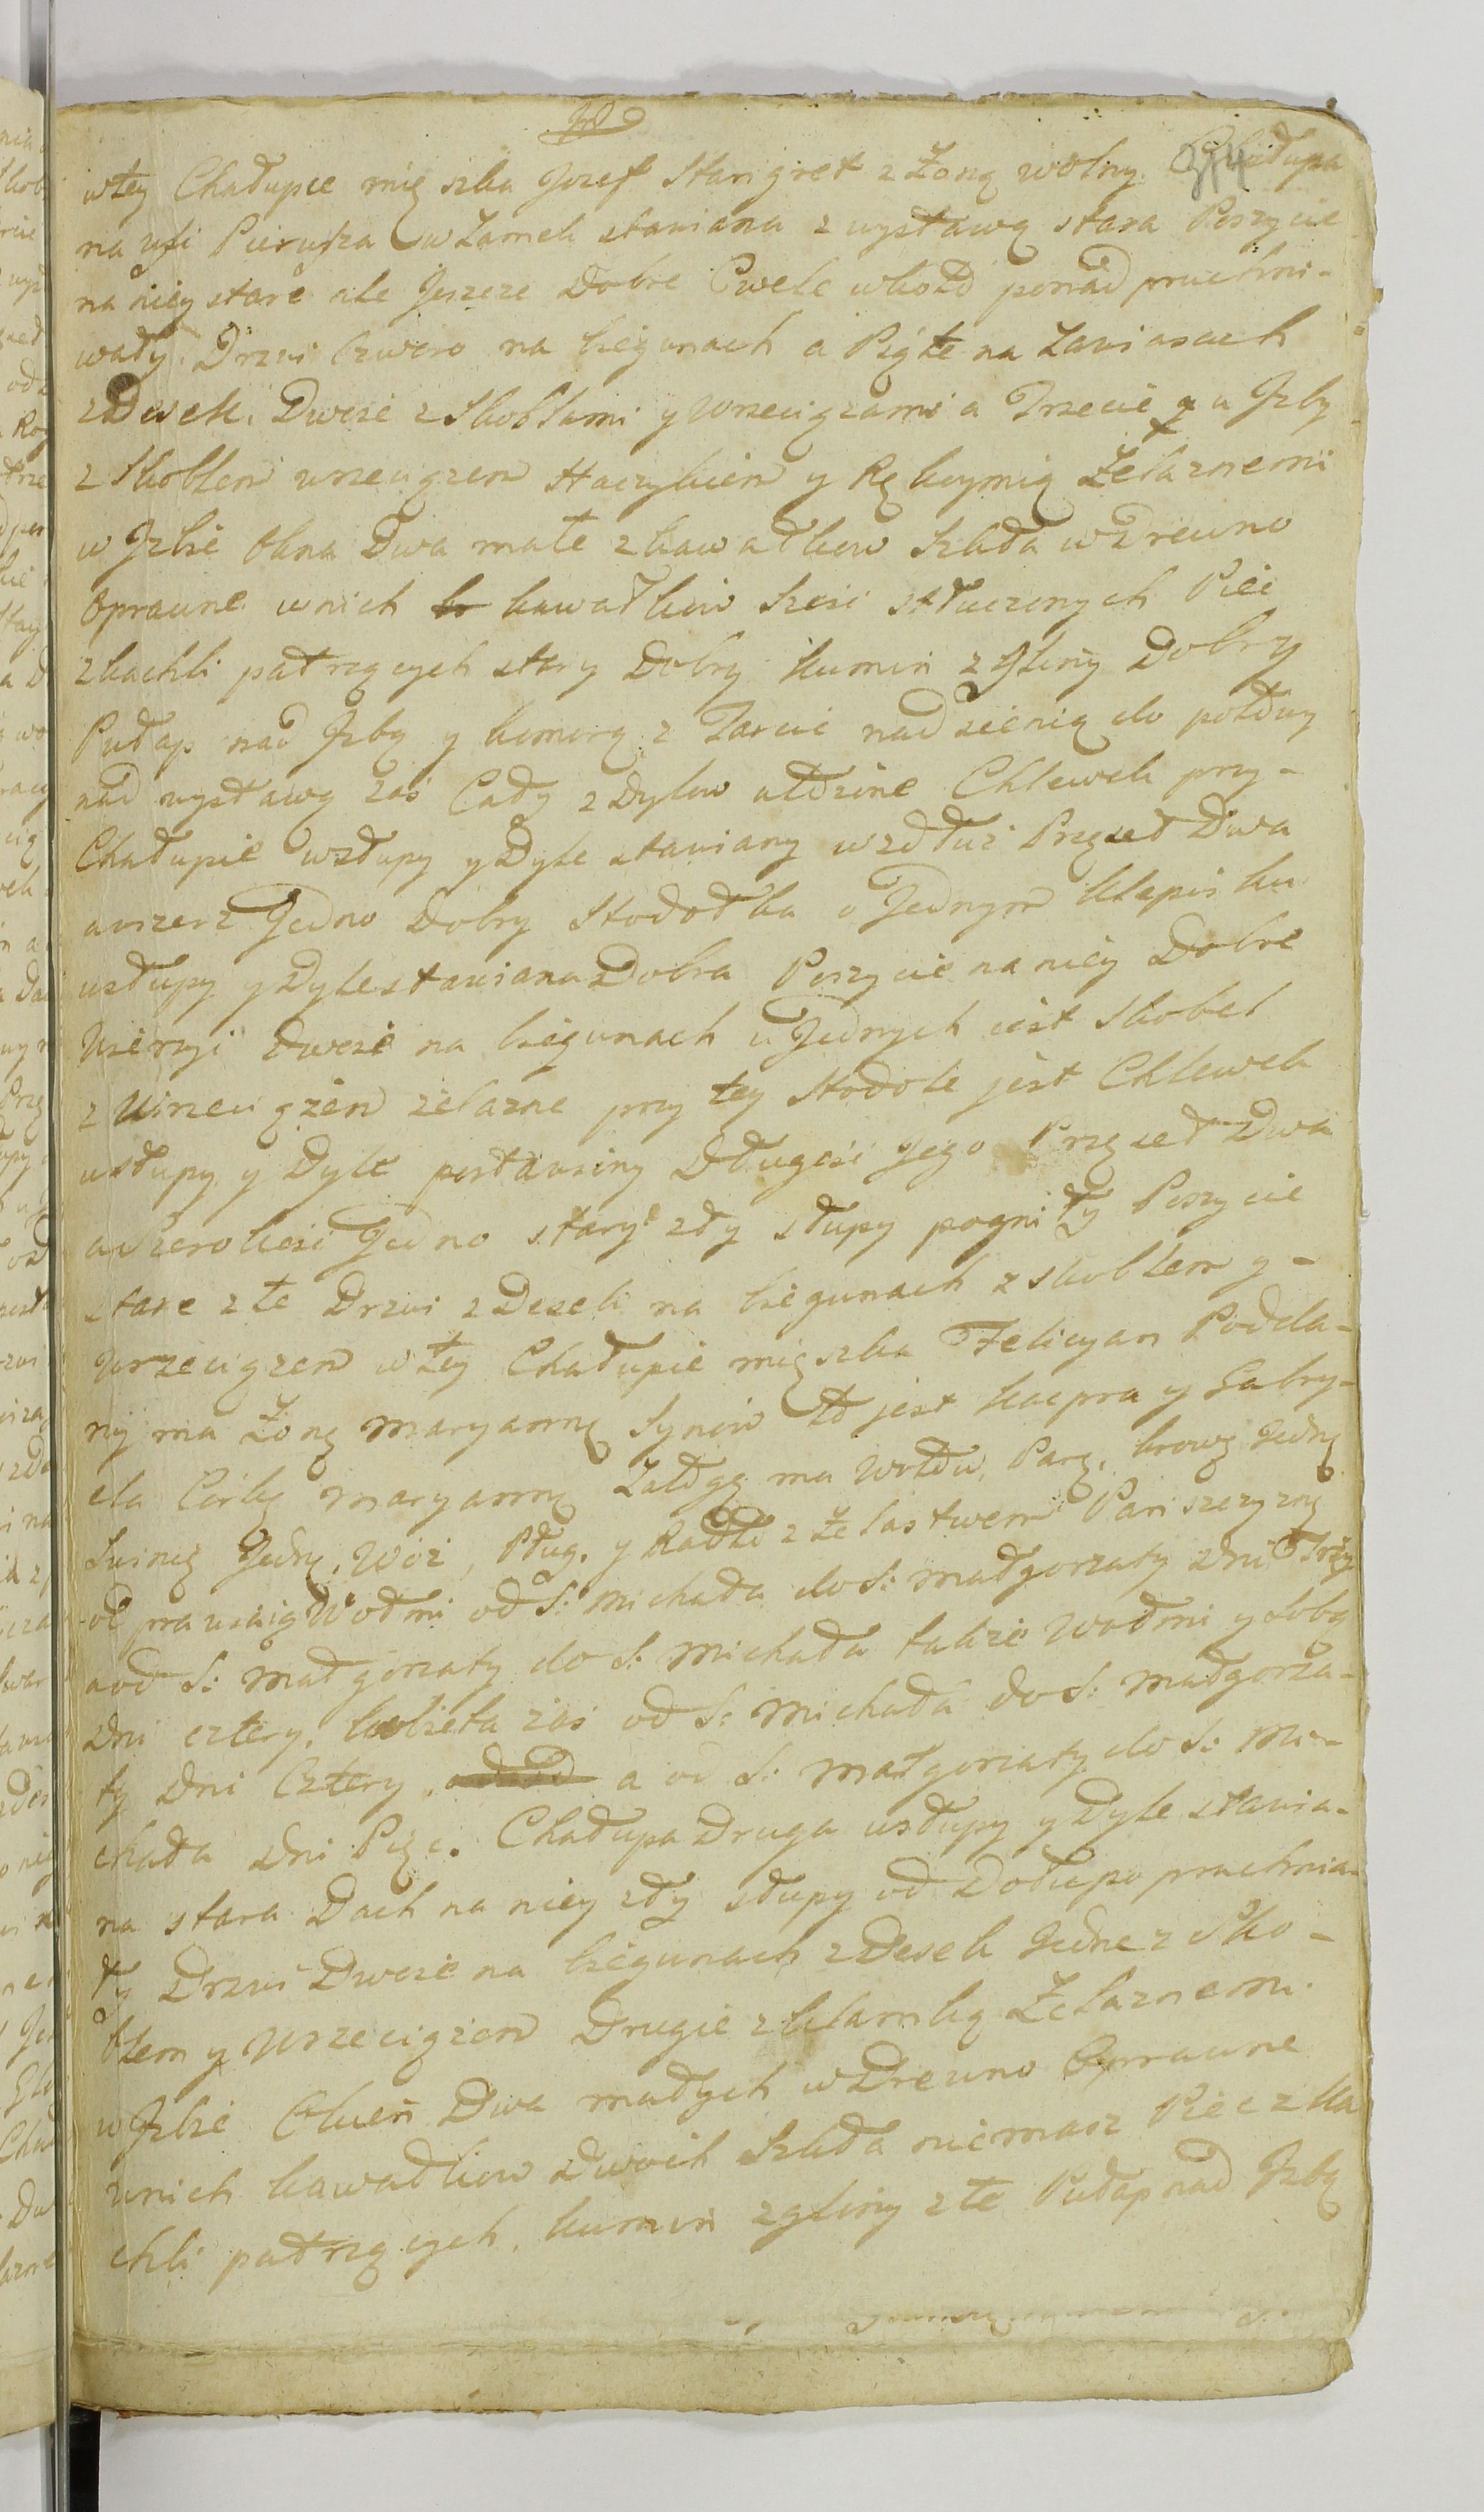 wtey Chałupce mięszka Jozef Stangret z Żoną wolny. Chałupa
na wsi Pierwsza w Zamek stawiana z wystawą stara Poszycie
na niey stare ale Jeszcze Dobre Cwele wkoło ponad pruchni-
wały. Drzwi Czworo na biegunach a Piąte na Zawiasach
z Desek. Dwoie z Skoblami y Wrzeciązami a Trzecie u Jzby
z Skoblem wrzeciązem Haczykiem y Rękoymią Żelaznemi
w Jzbie Okna Dwa małe z kawałkow Szkła w Drewno
Oprawne w nich kawałkow Sześć stłuczonych Piec
z kachli patrzących stary Dobry kumin z Gliny Dobry
Pułap nad Jzbą y komorą z Tarcic nad sienią do połowy
nad wystawą zaś Cały z Dylow ułożone Chlewek przy-
Chałupie wsłupy y Dyle stawiany wzdłuż Przęseł Dwa
awszerz Jedno Dobry Stodołka o Jednym klepisku
wsłupy y Dyle stawiana Dobra Poszycie na niey Dobre
Wierzyi Dwoie na biegunach u Jednych iest Skobel
z Wrzeciążem żelazne przy tey Stodole jest Chlewek
wsłupy y Dyle postawiony Długość Jego Przęseł Dwa
a Szerokość Jedno stary zły słupy pogniły Poszycie
stare złe Drzwi z Desek na biegunach z skoblem y-
Wrzeciązem w tey Chałupie mięszka Felicyan Podda-
ny ma Żonę Maryannę Synow to jest kacpra y Gabry-
ela Corkę Maryannę Załogę ma Wołow Parę, krowę Jednę
Swinię Jednę, Woz, Pług, y Radło z Żelastwem Panszczyznę
odprawuią Wołmi od S: Michała do S: Małgorzaty Dni Trzy
a od S: Małgorzaty do S: Michała także Wołmi y Sobą
Dni cztery. kobieta zaś od S: Michała do S: Małgorza-
ty Dni Cztery. a od S: Małgorzaty do S: Mi-
chała Dni Pięc. Chałupa Druga wsłupy y Dyle stawia-
na stara Dach na niey zły słupy od Dołu popruchnia-
ły Drzwi Dwoie na biegunach z Desek Jedne z Sko-
blem y Wrzeciążem Drugie z klamką Żelaznemi.
w Jzbie Okien Dwa małych w Drewno Oprawne
w nich kawałkow Dwoch Szkła niemasz Piec z ka
chli patrzących. kumin z gliny złe Pułap nad Jzbą